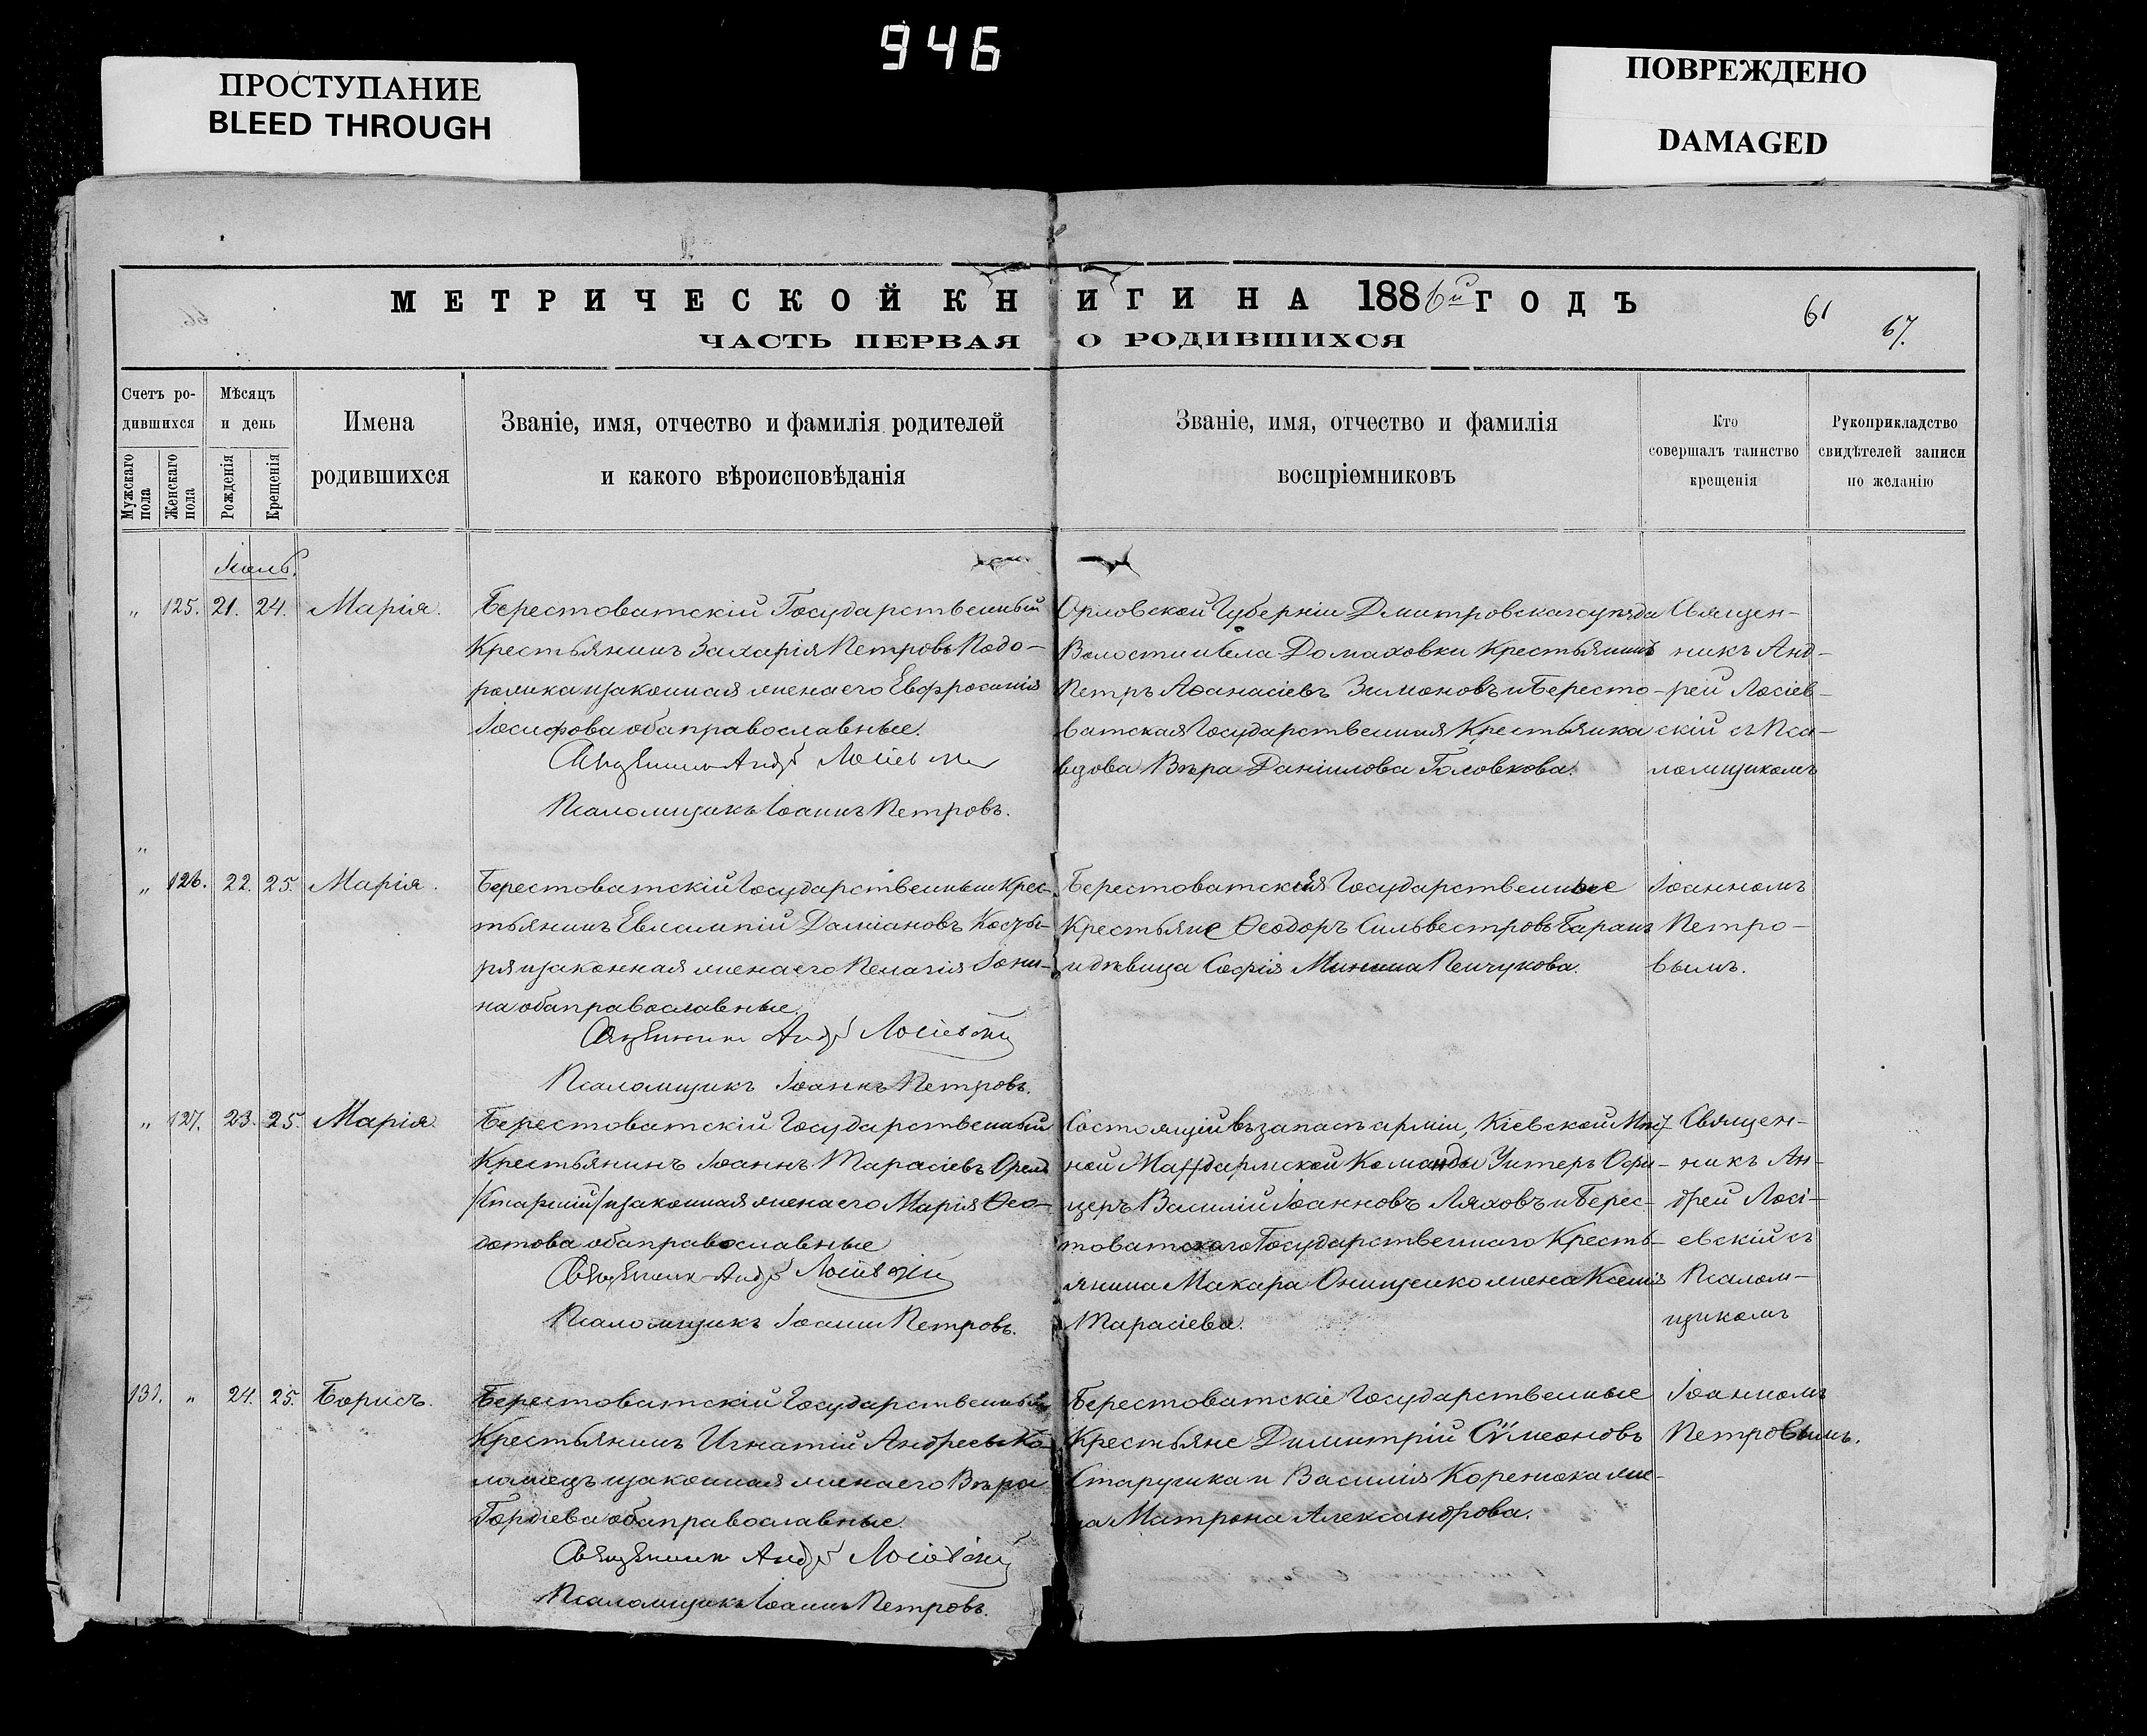 946
ПРОСТУПАНИЕ
BLEED THROUGH
ПОВРЕЖДЕНО
DAMAGED
МЕТРИЧЕСКОЙ КНИГИ НА 1886й ГОДЪ
61
67.
ЧАСТЬ ПЕРВАЯ О РОДИВШИХСЯ
Счетъ ро-
дившихся
Мужскаго пола
Женскаго пола
Мѣсяцъ
и день
Рожденія
Крещенія
Имена
родившихся
Званіе, имя, отчество и фамилія родителей
и какого вѣроисповѣданія
Званіе, имя, отчество и фамилія
воспріемниковъ
Кто
совершалъ таинство
крещенія
Рукоприкладство
свидѣтелей записи
по желанію
„ 125. 21. 24. Марія.
Берестоватскій Государственный
Крестьянинъ Захарія Петровъ Подо-
ролика и законная жена его Евфросинія
Іосифова оба православные.
Священникъ Андрей Лосіевскій
Псаломщикъ Іоаннъ Петровъ.
Орловской Губерніи Дмитровскаго уѣзда
Волости и Села Домаховки Крестьянинъ
Петръ Аѳанасіевъ Зимоновъ и Бересто-
ватская Государственная Крестьянка
вдова Вѣра Даніилова Головкова.
Священ-
никъ Анд-
рей Лосіев-
скій съ Пса-
ломщикомъ
„
„ 126. 22. 25. Марія.
Берестоватскій Государственный Крес-
тьянинъ Евлампій Даміановъ Косты-
ря и законная жена его Пелагія Іони-
на оба православные.
Священникъ Андрей Лосіевскій
Псаломщикъ Іоаннъ Петровъ.
Берестоватскія Государственные
Крестьяне Ѳеодоръ Сильвестровъ Баранъ
и дѣвица Софія Минина Пенчукова.
Іоанномъ
Петро-
вымъ.
„ 127. 23. 25. Марія.
Берестоватскій Государственный
Крестьянинъ Іоаннъ Тарасіевъ Орелъ
/Старшій/ и законная жена его Марія Ѳео-
дотова оба православные
Священникъ Андрей Лосіевскій
Псаломщикъ Іоаннъ Петровъ.
Состоящій въ запасѣ арміи, Кіевской
ной Жандармской Команды Унтеръ Офи-
церъ Василій Іоанновъ Ляховъ и Берес-
товатскаго Государственнаго Кресть-
янина Макара Онищенко жена Ксенія
Тарасіева.
Священ-
никъ Ан-
дрей Лосі-
евскій съ
Псалом-
щикомъ
131. „ 24. 25. Борисъ.
Берестоватскій Государственный
Крестьянинъ Игнатій Андреевъ Ко-
ломецъ и законная жена его Вѣра
Гордіева оба православные.
Священникъ Андрей Лосіевскій
Псаломщикъ Іоаннъ Петровъ.
Берестоватскіе Государственные
Крестьяне Димитрій Сѵмеоновъ
Старушка и Василія Коренюка же-
на Матрона Александрова.
Іоанномъ
Петровымъ.